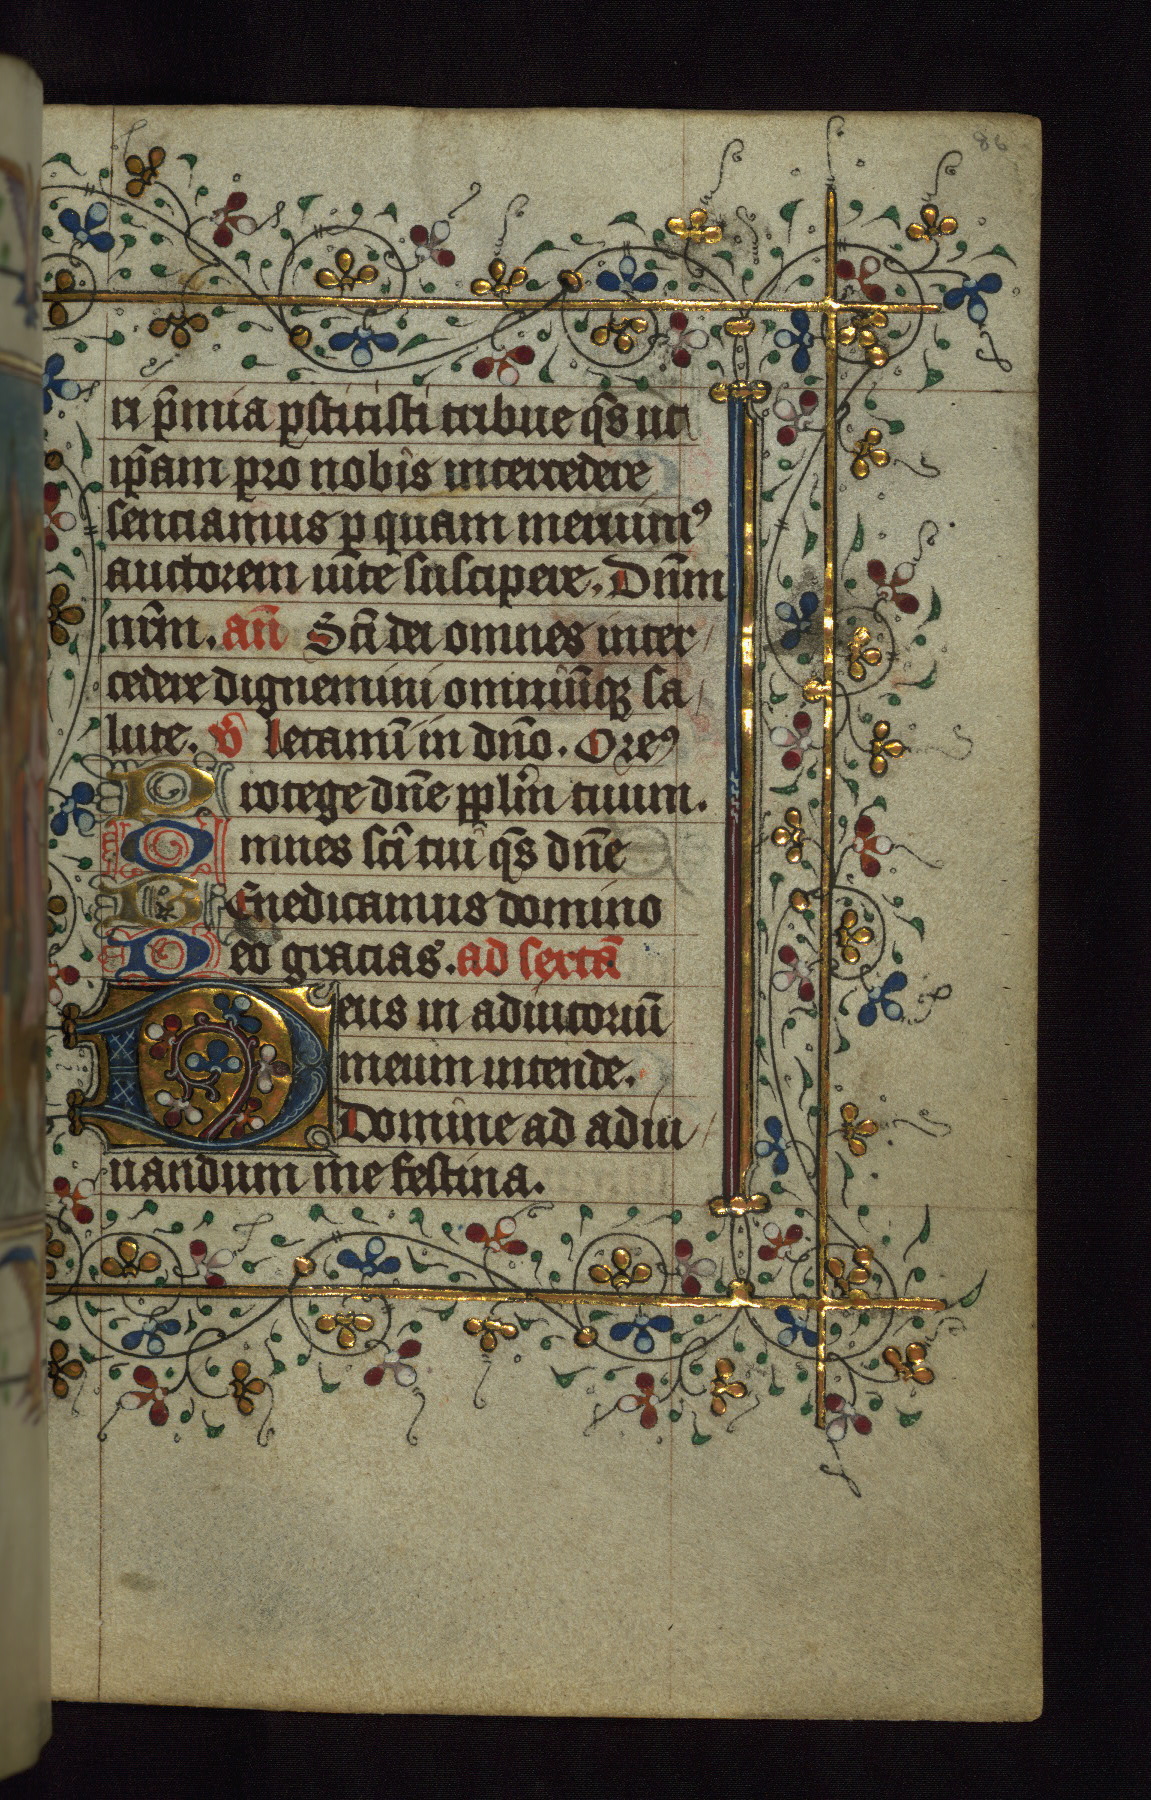 86
ri p̄mia p̄stitisti tribue q̄s ut
ip̄am pro nobis intercedere
sentiamus p quam meruimꝰ
auctorem uite suscipere. Dn̄m
nr̄m. an̄ Sc̄i dei omnes inter
cedere dignemini omniūqꝫ sa
lute. v̄ letamī in dn̄o. Oreꝰ
Protege dn̄e pplm̄ tuum.
Omnes sc̄i tui q̄s dn̄e
Benedicamus domino
Deo gracias. ad sextā
Deus in adiutoriū
meum intende.
Domine ad adiu
uandum me festina.